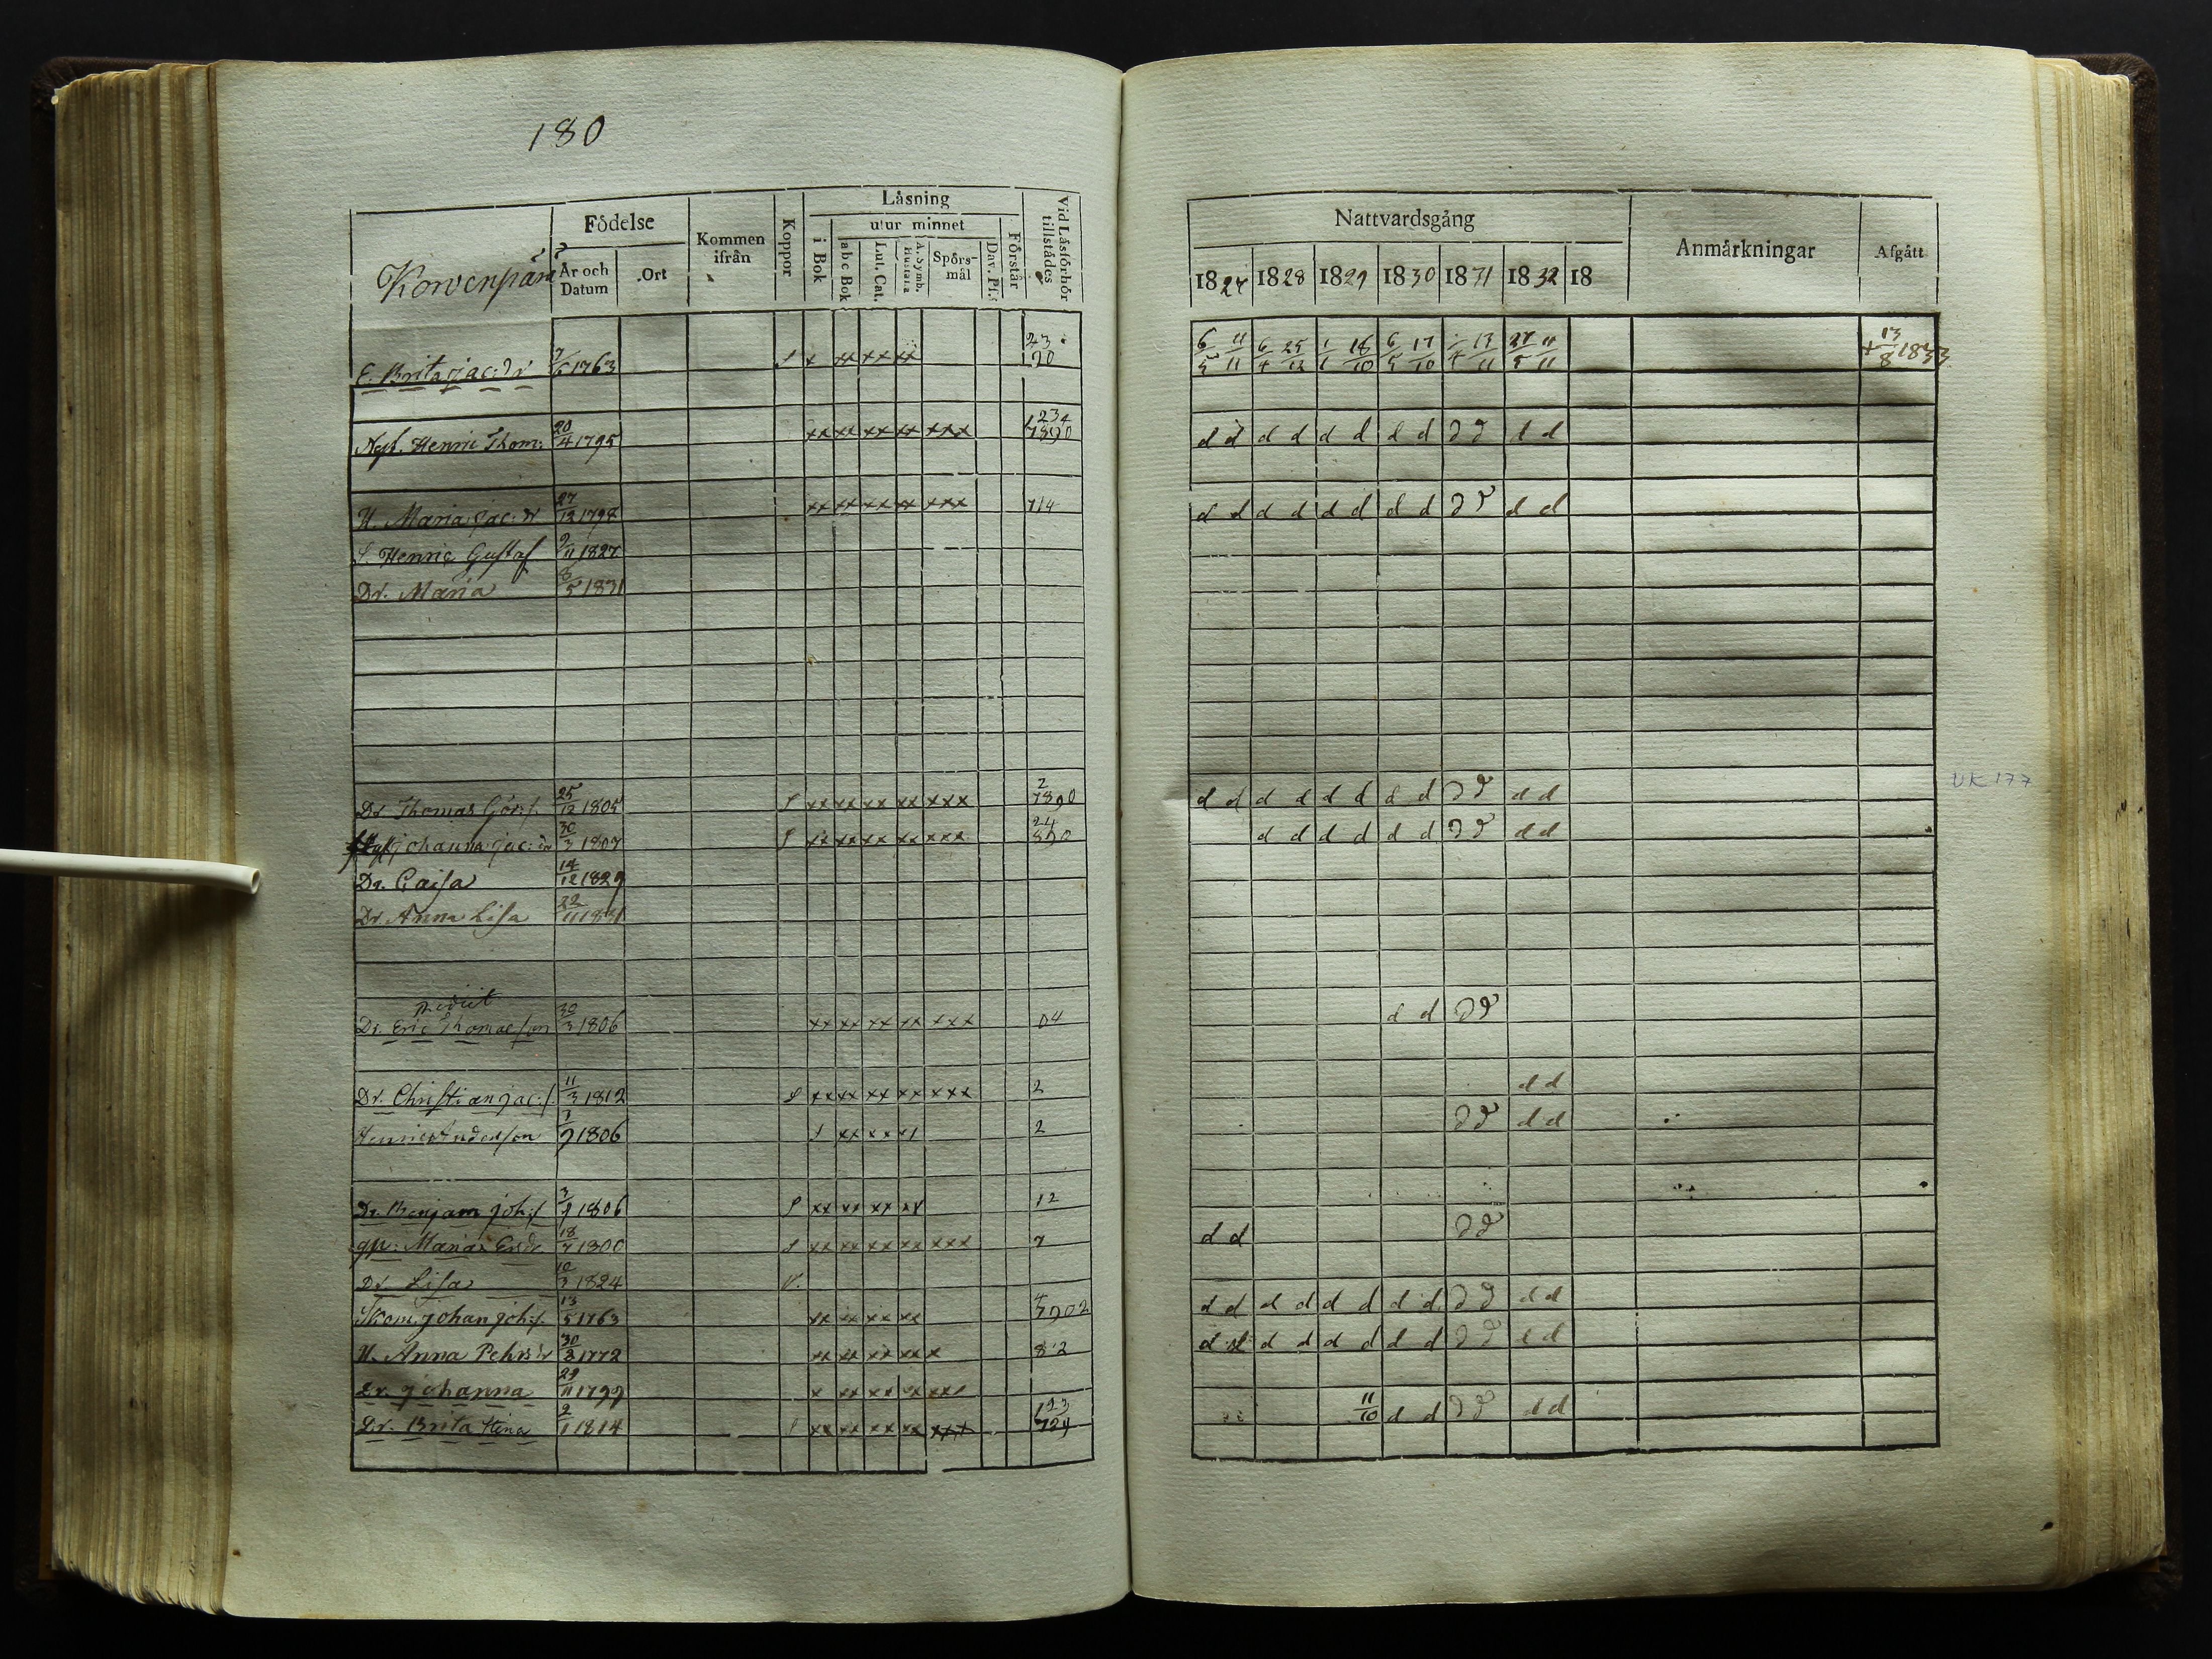 180
Korvenpää
Födelse
År och Datum
Ort
Kommen ifrån
Koppor
Läsning
i Bok
utur minnet
a b c Bok
Lut. Cat.
A. Symb.
Hustafla
Spörs-mål
Dav. Ps.
Förstår
Vid Läsförhör tillstädes
E. Brita Jac: dr 7/6 1763 x xx xx xx 23 190
Nyb. Henric Thom: 20/4 1795 xx xx xx xx xxx 234
H. Maria Jac: dr 27/12 1798 xx xx xx xx xxx 714
S. Henric Gustaf 2/11 1827
Dr. Maria 8/5 1831
Dr Thomas Gör: s. 25/12 1805 S xx xx xx xx xxx 2 7890
Johanna Jac: dr 30/3 1807 S xx xx xx xx xxx 24 890
Dr. Caisa 14/12 1829
Dr. Anna Lisa 22/11 1831
rediit
Dr. Eric Thomasson 30/3 1806 xx xx xx xx xxx 04
Dr. Christian Jac: s. 11/3 1812 S xx xx xx xx xxx 2
Henric Anderson 1806 xx 2
Dr. Benjam Joh: s 1806 S xx xx xx xx 12
gp: Maria Er: dr 18/7 1800 S xx xx xx xx xxx 7
Dr. Lisa 10/3 1824 V.
Skom. Johan Joh: s. 13/5 1763 xx xx xx xx
H. Anna Pehrs dr 30/8 1772 xx xx xx xx x 8 2
Dr. Johanna 29/11 1799 x xx xx xx xxx
Dr. Brita Stina 2/1 1814 S xx xx xx xx xxx
Nattvardsgång
Anmärkningar
Afgått
1827 1828 1829 1830 1831 1832 18
6/5 11/11 6/4 25/12 1/1 18/10 6/5 17/10 13/11 27/5 11/11 + 13/8 1833
d d d d d d d d d d d d
d d d d d d d d d d d d
d d d d d d d d d d d d
UK 177
d d d d d d d d d d
d d d d
d d
d d d d
d d d d
d d d d d d d d d d d d
d d d d d d d d d d d d
11/10 d d d d d d